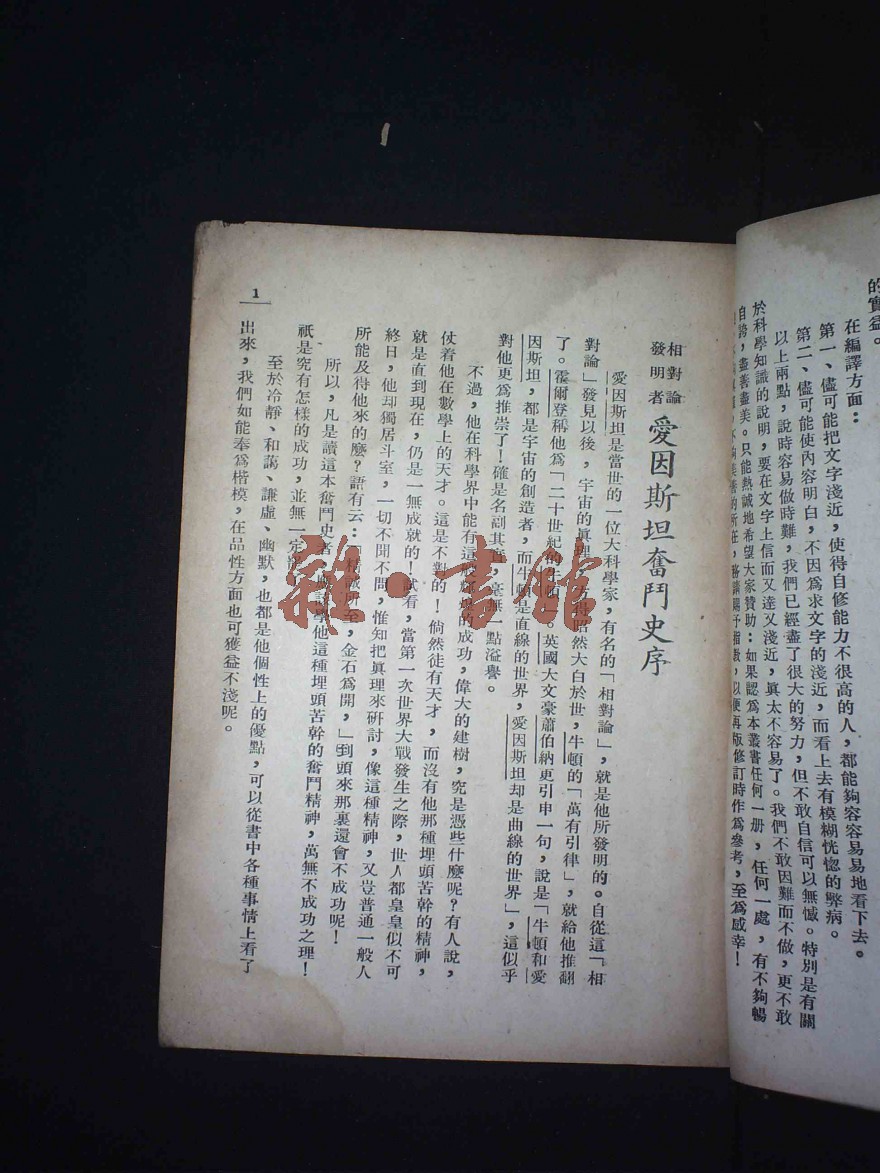 的實益。
在編譯方面：
第一、儘可能把文字淺近，使得自修能力不很高的人，都能夠容容易易地看下去。
第二、儘可能使內容明白，不因爲求文字的淺近，而看上去有模糊恍惚的弊病。
以上兩點，說時容易做時難，我們已經盡了很大的努力，但不敢自信可以無憾。特別是有關
於科學知識的說明，要在文字上信而又達又淺近，眞太不容易了。我們不敢因難而不做，更不敢
自誇，盡善盡美。只能熱誠地希望大家贊助：如果認爲本叢書任何一册，任何一處，有不夠暢
的所在，務請賜予指敎，以便再版修訂時作爲參考，至爲感幸！
相對論
發明者
愛因斯坦奮鬥史序
愛因斯坦是當世的一位大科學家，有名的「相對論」，就是他所發明的。自從這「相
對論」發見以後，宇宙的眞理，方得昭然大白於世，牛頓的「萬有引律」，就給他推翻
了。霍爾登稱他爲「二十世紀的牛頓」。英國大文豪蕭伯納更引申一句，說是「牛頓和愛
因斯坦，都是宇宙的創造者，而牛頓是直線的世界，愛因斯坦却是曲線的世界」，這似乎
對他更爲推崇了！確是名副其實，毫無一點溢譽。
不過，他在科學界中能有這般輝煌的成功，偉大的建樹，究是憑些什麼呢？有人說，
仗着他在數學上的天才。這是不對的！倘然徒有天才，而沒有他那種埋頭苦幹的精神，
就是直到現在，仍是一無成就的！試看，當第一次世界大戰發生之際，世人都皇皇似不可
終日，他却獨居斗室，一切不開不問，惟知把眞理來研討，像這種精神，又豈普通一般人
所能及得他來的麼？語有云：「精誠所至，金石爲開，」到頭來那裏還會不成功呢！
所以，凡是讀這本奮鬥史者，應該學他這種埋頭苦幹的奮鬥精神，萬無不成功之理！
祇是究有怎樣的成功，並無一定
至於冷靜、和藹、謙虛、幽默，也都是他個性上的優點，可以從書中各種事情上看了
出來，我們如能奉爲楷模，在品性方面也可獲益不淺呢。
1
雜·書館